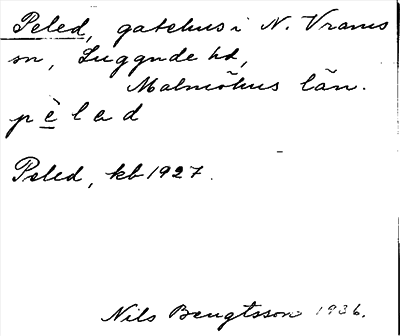 Peled, gatehus i N. Vrams
sn, Luggude hd,
Malmöhus län.
pèlad
Peled, kb 1927.
Nils Bengtsson 1936.